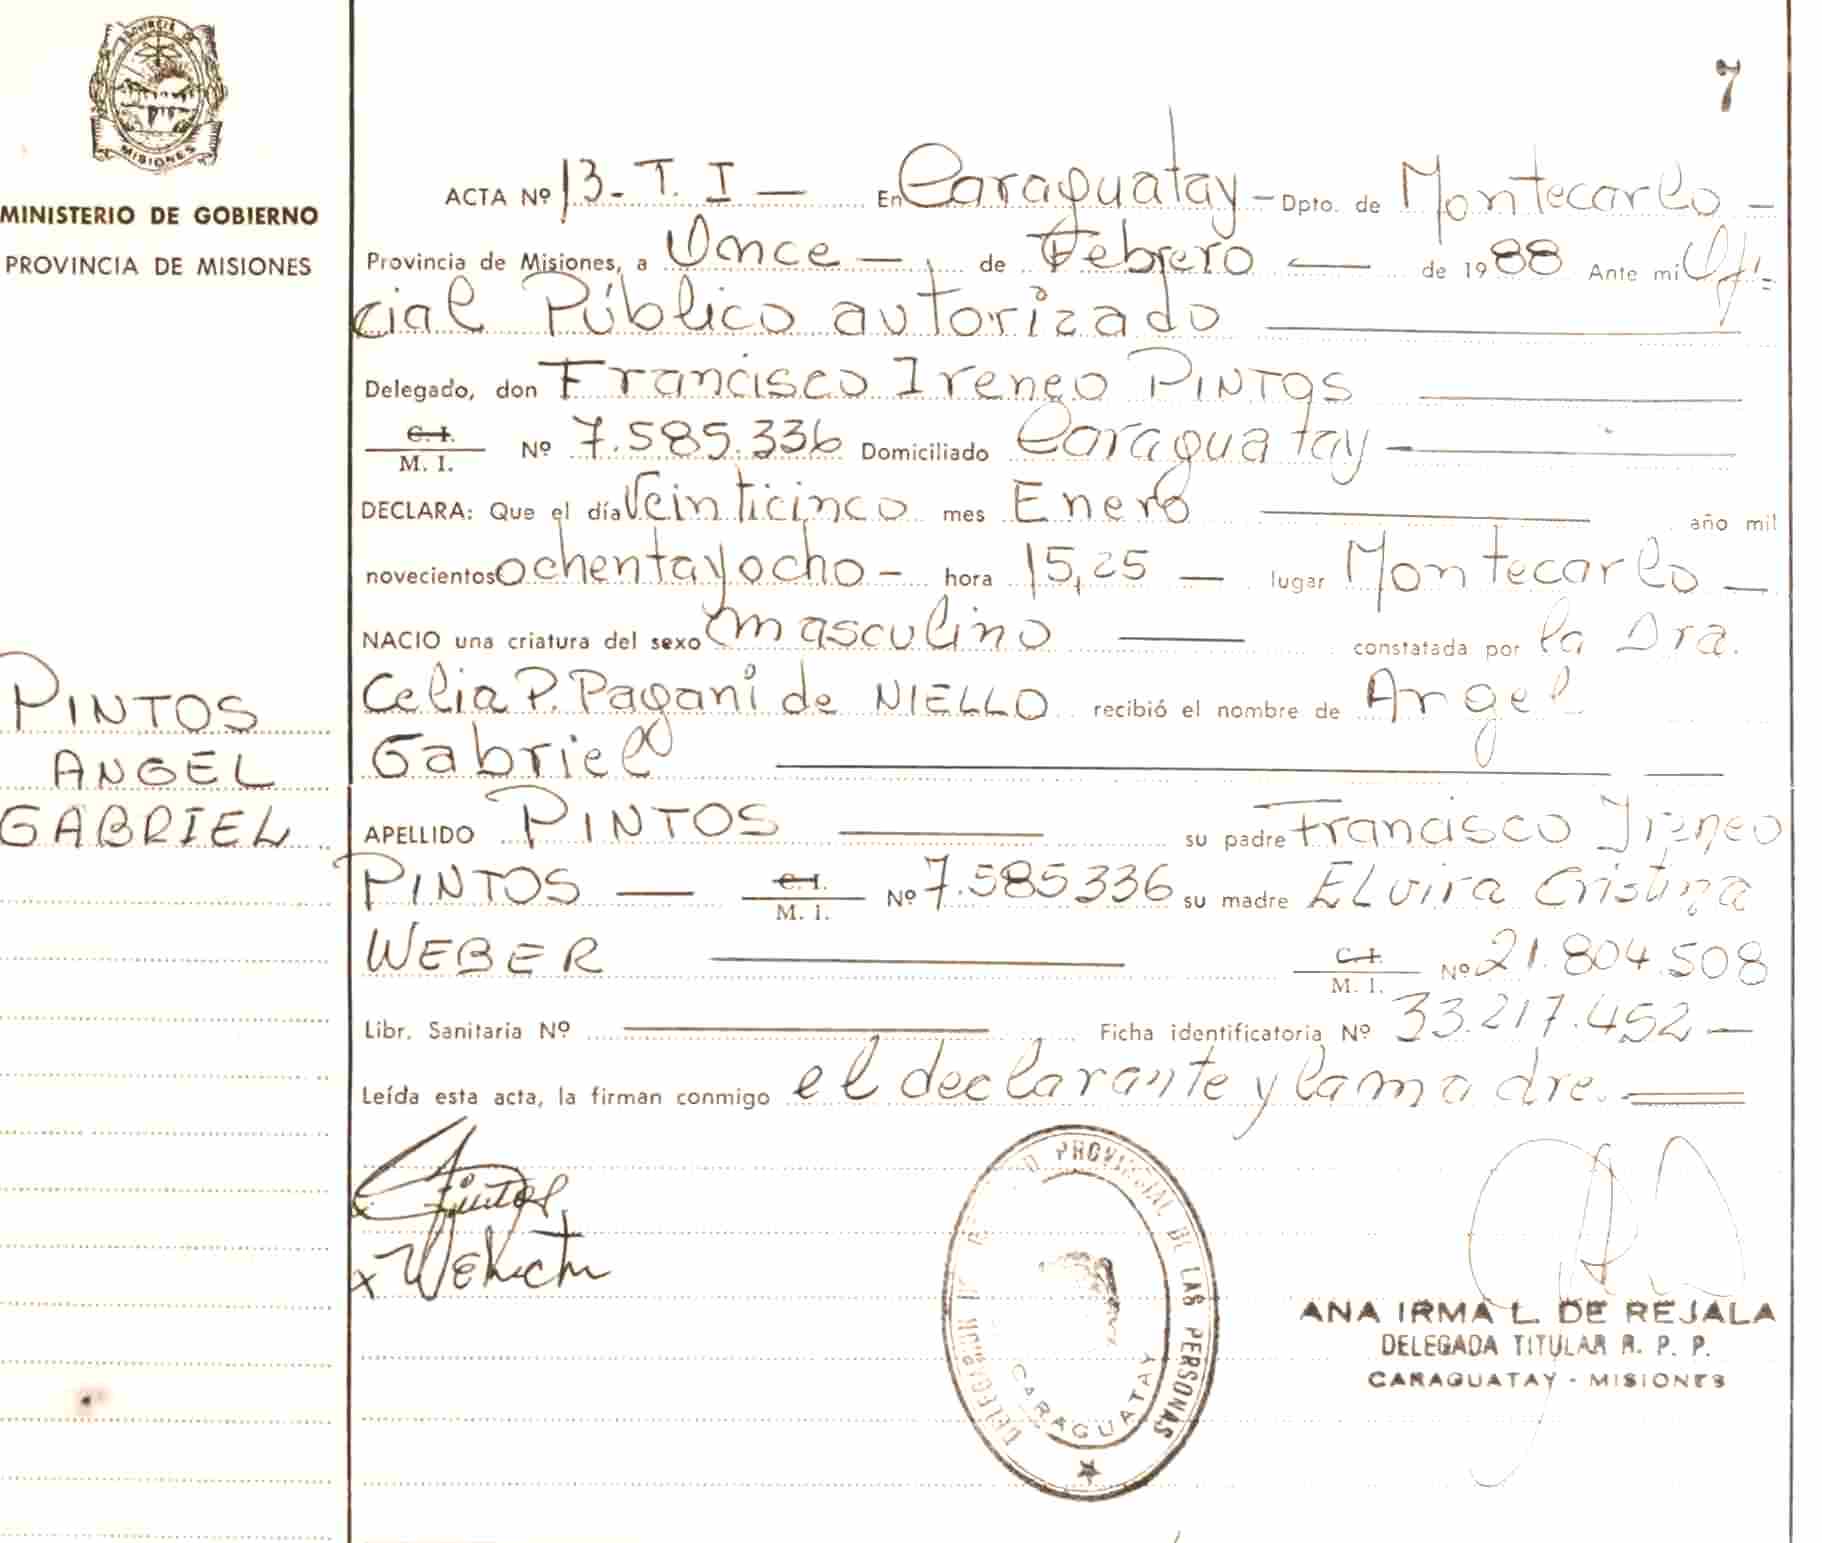 PROVINCIA DE
MISIONES
MINISTERIO DE GOBIERNO
PROVINCIA DE MISIONES
7
ACTA Nº 13-T. I — En Caraguatay - Dpto. de Montecarlo -
Provincia de Misiones, a Once — de Febrero — de 1988 Ante mi Ofi-
cial Público autorizado
Delegado, don Francisco Ireneo PINTOS
C. I.
M. I. Nº 7.585.336 Domiciliado Caraguatay
DECLARA: Que el día Veinticinco mes Enero año mil
novecientos ochentayocho - hora 15,25 — lugar Montecarlo -
NACIO una criatura del sexo masculino constatada por la Dra.
Celia P. Pagani de NIELLO recibió el nombre de Angel
Gabriel
PINTOS
ANGEL
GABRIEL
APELLIDO PINTOS su padre Francisco Ireneo
PINTOS — C. I. M. I. Nº 7.585336 su madre ELvira Cristina
WEBER C. I. M. I. Nº 21.804.508
Libr. Sanitaria Nº Ficha identificatoria Nº 33.217.452 —
Leída esta acta, la firman conmigo el declarante y la madre.
Pintos
PROVINCIAL DE LAS PERSONAS
CARAGUATAY
ANA IRMA L. DE REJALA
DELEGADA TITULAR R. P. P.
CARAGUATAY - MISIONES